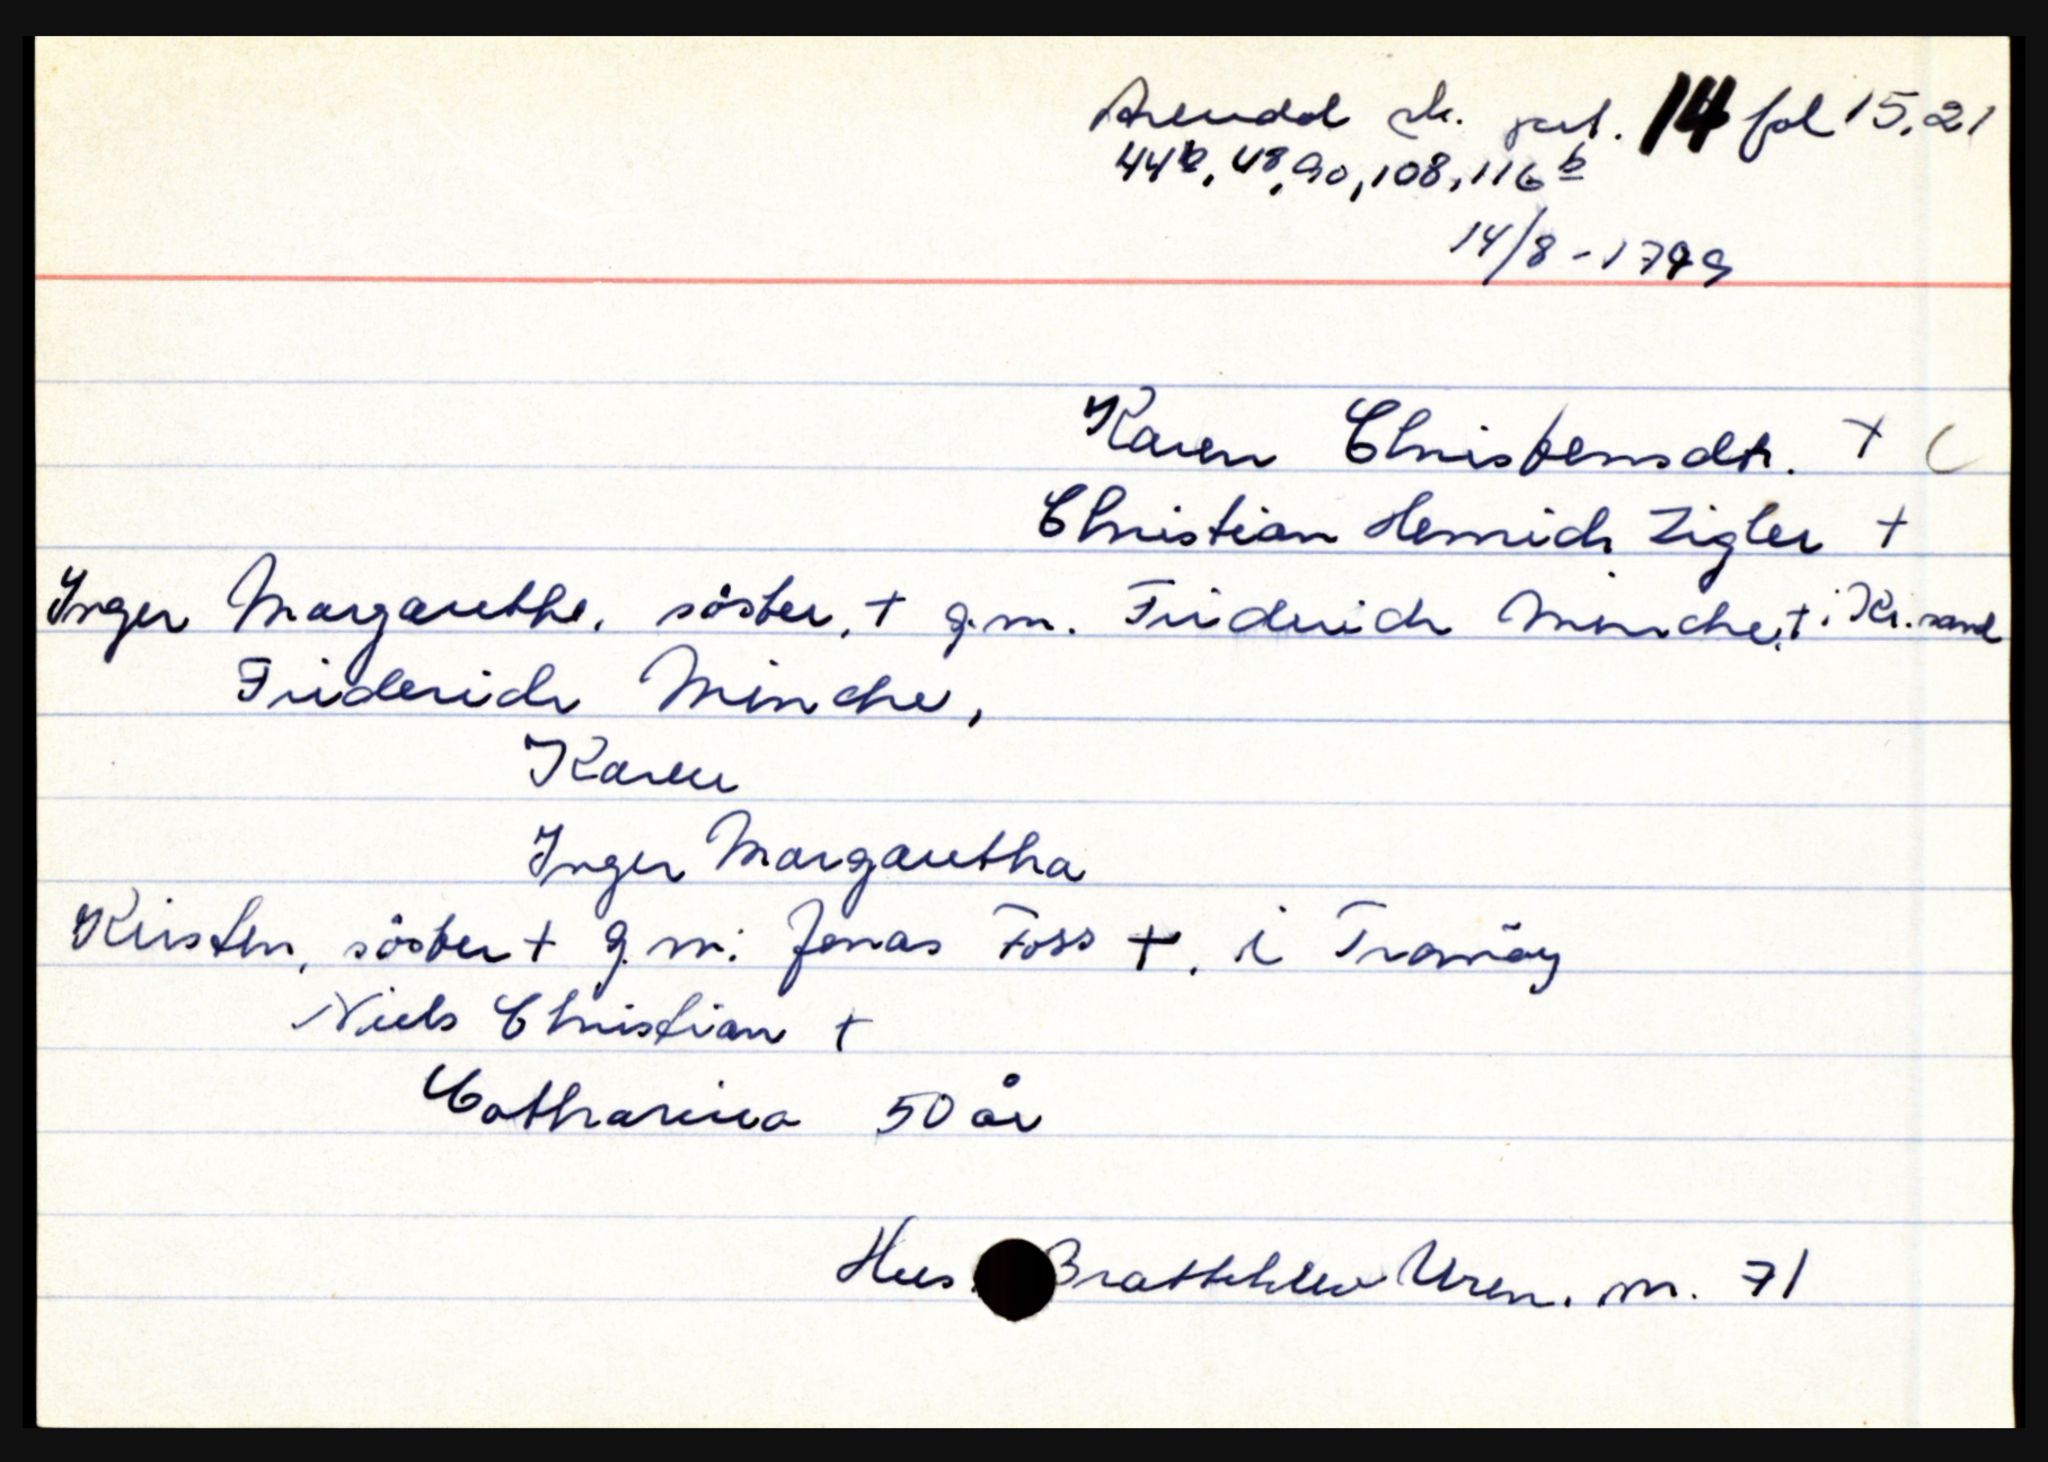 Arendal sk. prot. 14 fol 15, 21
44b, 48, 90, 108, 116b
14/8 - 1799
Karen Christensdtr. +
Christian Henrich Zigler +
Inger Margarethe, söster, + g.m. Friderich Minche, + i Kr.sand
Friderich Minche,
Karen
Inger Margaretha
Kirsten, söster + g.m. Jonas Foss +, i Tromöy
Niels Christian +
Catharina 50 år
Hus. Bratteklev Uren. m. 71